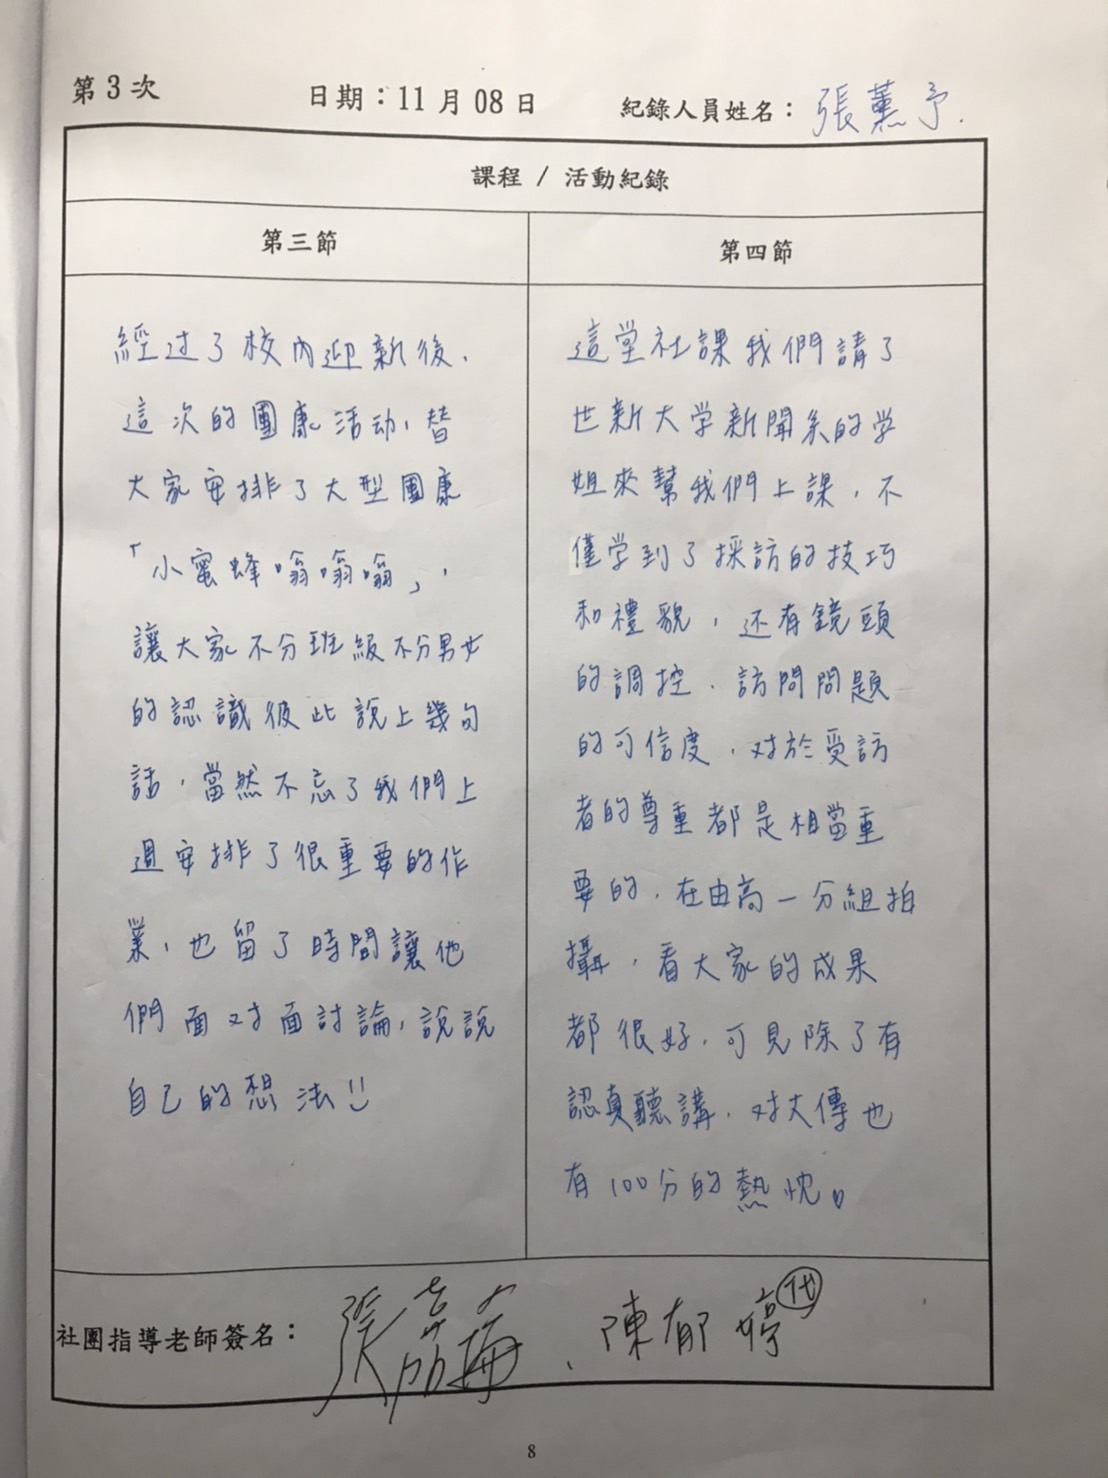 第3次
日期：11月08日
紀錄人員姓名：張薰予.
課程 / 活動紀錄
第三節
經过了校內迎新後，
這次的團康活动，替
大家安排了大型團康
「小蜜蜂嗡嗡嗡」，
讓大家不分班級不分男女
的認識彼此說上幾句
話，當然不忘了我們上
週安排了很重要的作
業，也留了時間讓他
們面对面討論，說說
自己的想法!!
第四節
這堂社課我們請了
世新大学新聞系的学
姐來幫我們上課，不
僅学到了採訪的技巧
和禮貌，还有鏡頭
的調控、訪問問題
的可信度，对於受訪
者的尊重都是相當重
要的，在由高一分組拍
攝，看大家的成果
都很好，可見除了有
認真聽講，对大傳也
有100分的熱忱。
社團指導老師簽名：
張嘉、陳郁婷 代
8